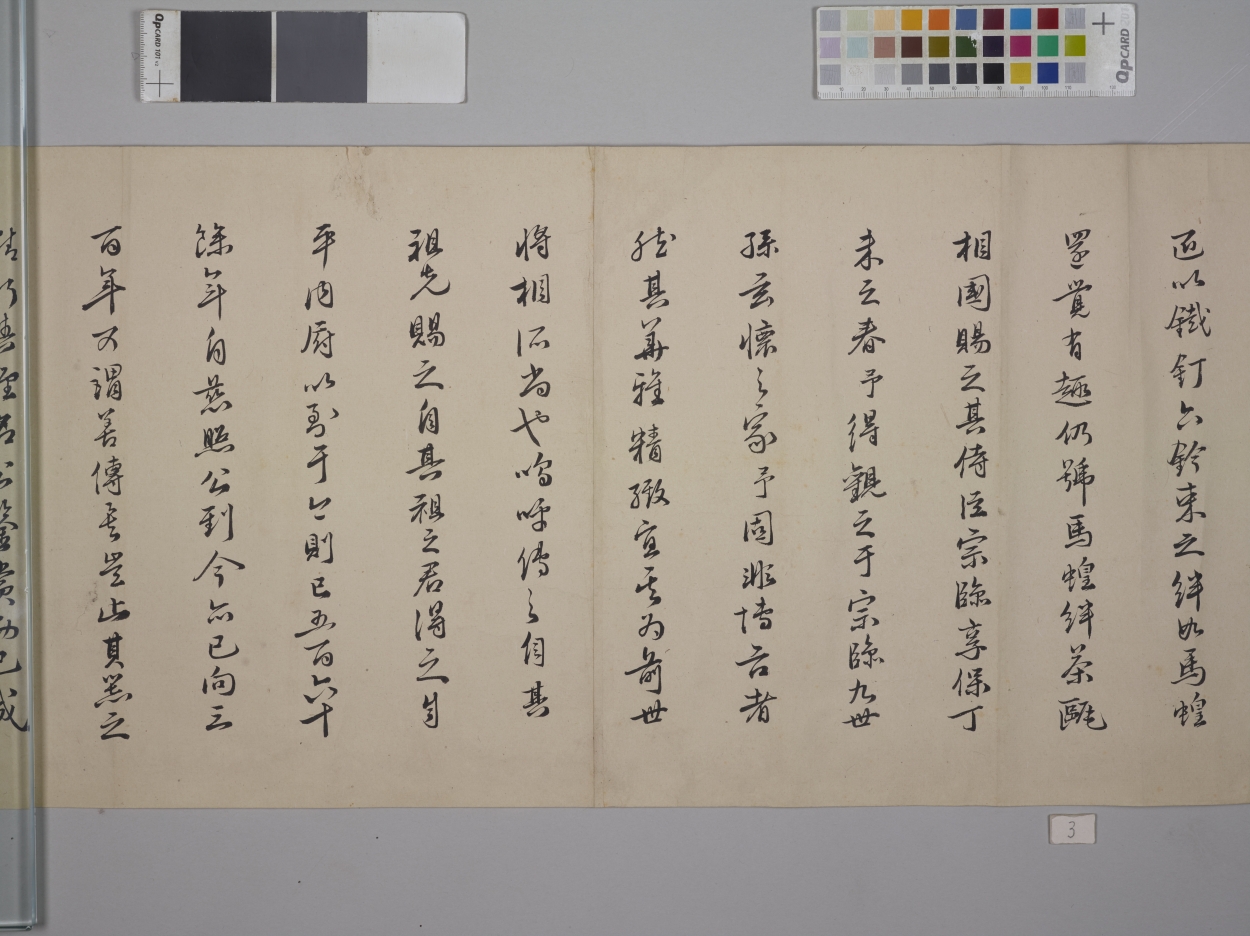 匝以鐵釘六鈐束之絆如馬蝗
還覺有趣仍號馬蝗絆茶甌
相國賜之其侍臣宗臨享保丁
未之春予得觀之于宗臨九世
孫玄懷之家予固非博古者
然其華雅精緻宜乎為前世
將相所尚也嗚呼傳之自其
祖先賜之自其祖之君得之自
平内府以到于今則已五百六十
餘年自慈照公到今亦已向三
百年可謂善傳矣豈止其器之
賞而已哉
QpCARD 101
QpCARD 101
3